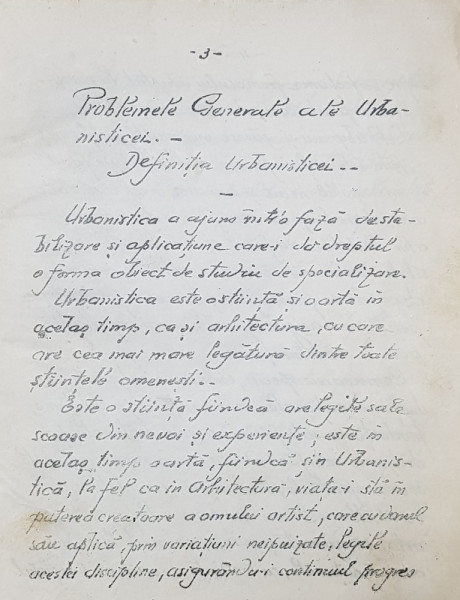 -3-
Problemele Generale ale Urba-
nisticei. -
Definiția Urbanisticei --
-
Urbanistica a ajuns într'o fază de sta-
bilizare și aplicațiune care-i dă dreptul
a forma obiect de studiu de specializare.
Urbanistica este o știință și o artă în
acelaș timp, ca și arhitectura, cu care
are cea mai mare legătură dintre toate
științele omenești..
Este o știință fiindcă are legile sale
scoase din nevoi și experiențe; este în
acelaș timp o artă, fiindcă și în Urbanis-
tică, la fel ca în Arhitectură, viața-i stă în
puterea creatoare a omului artist, care cu
său aplică, prin variațiuni neipuizate, legile
acestei discipline, asigurându-i continuul progres